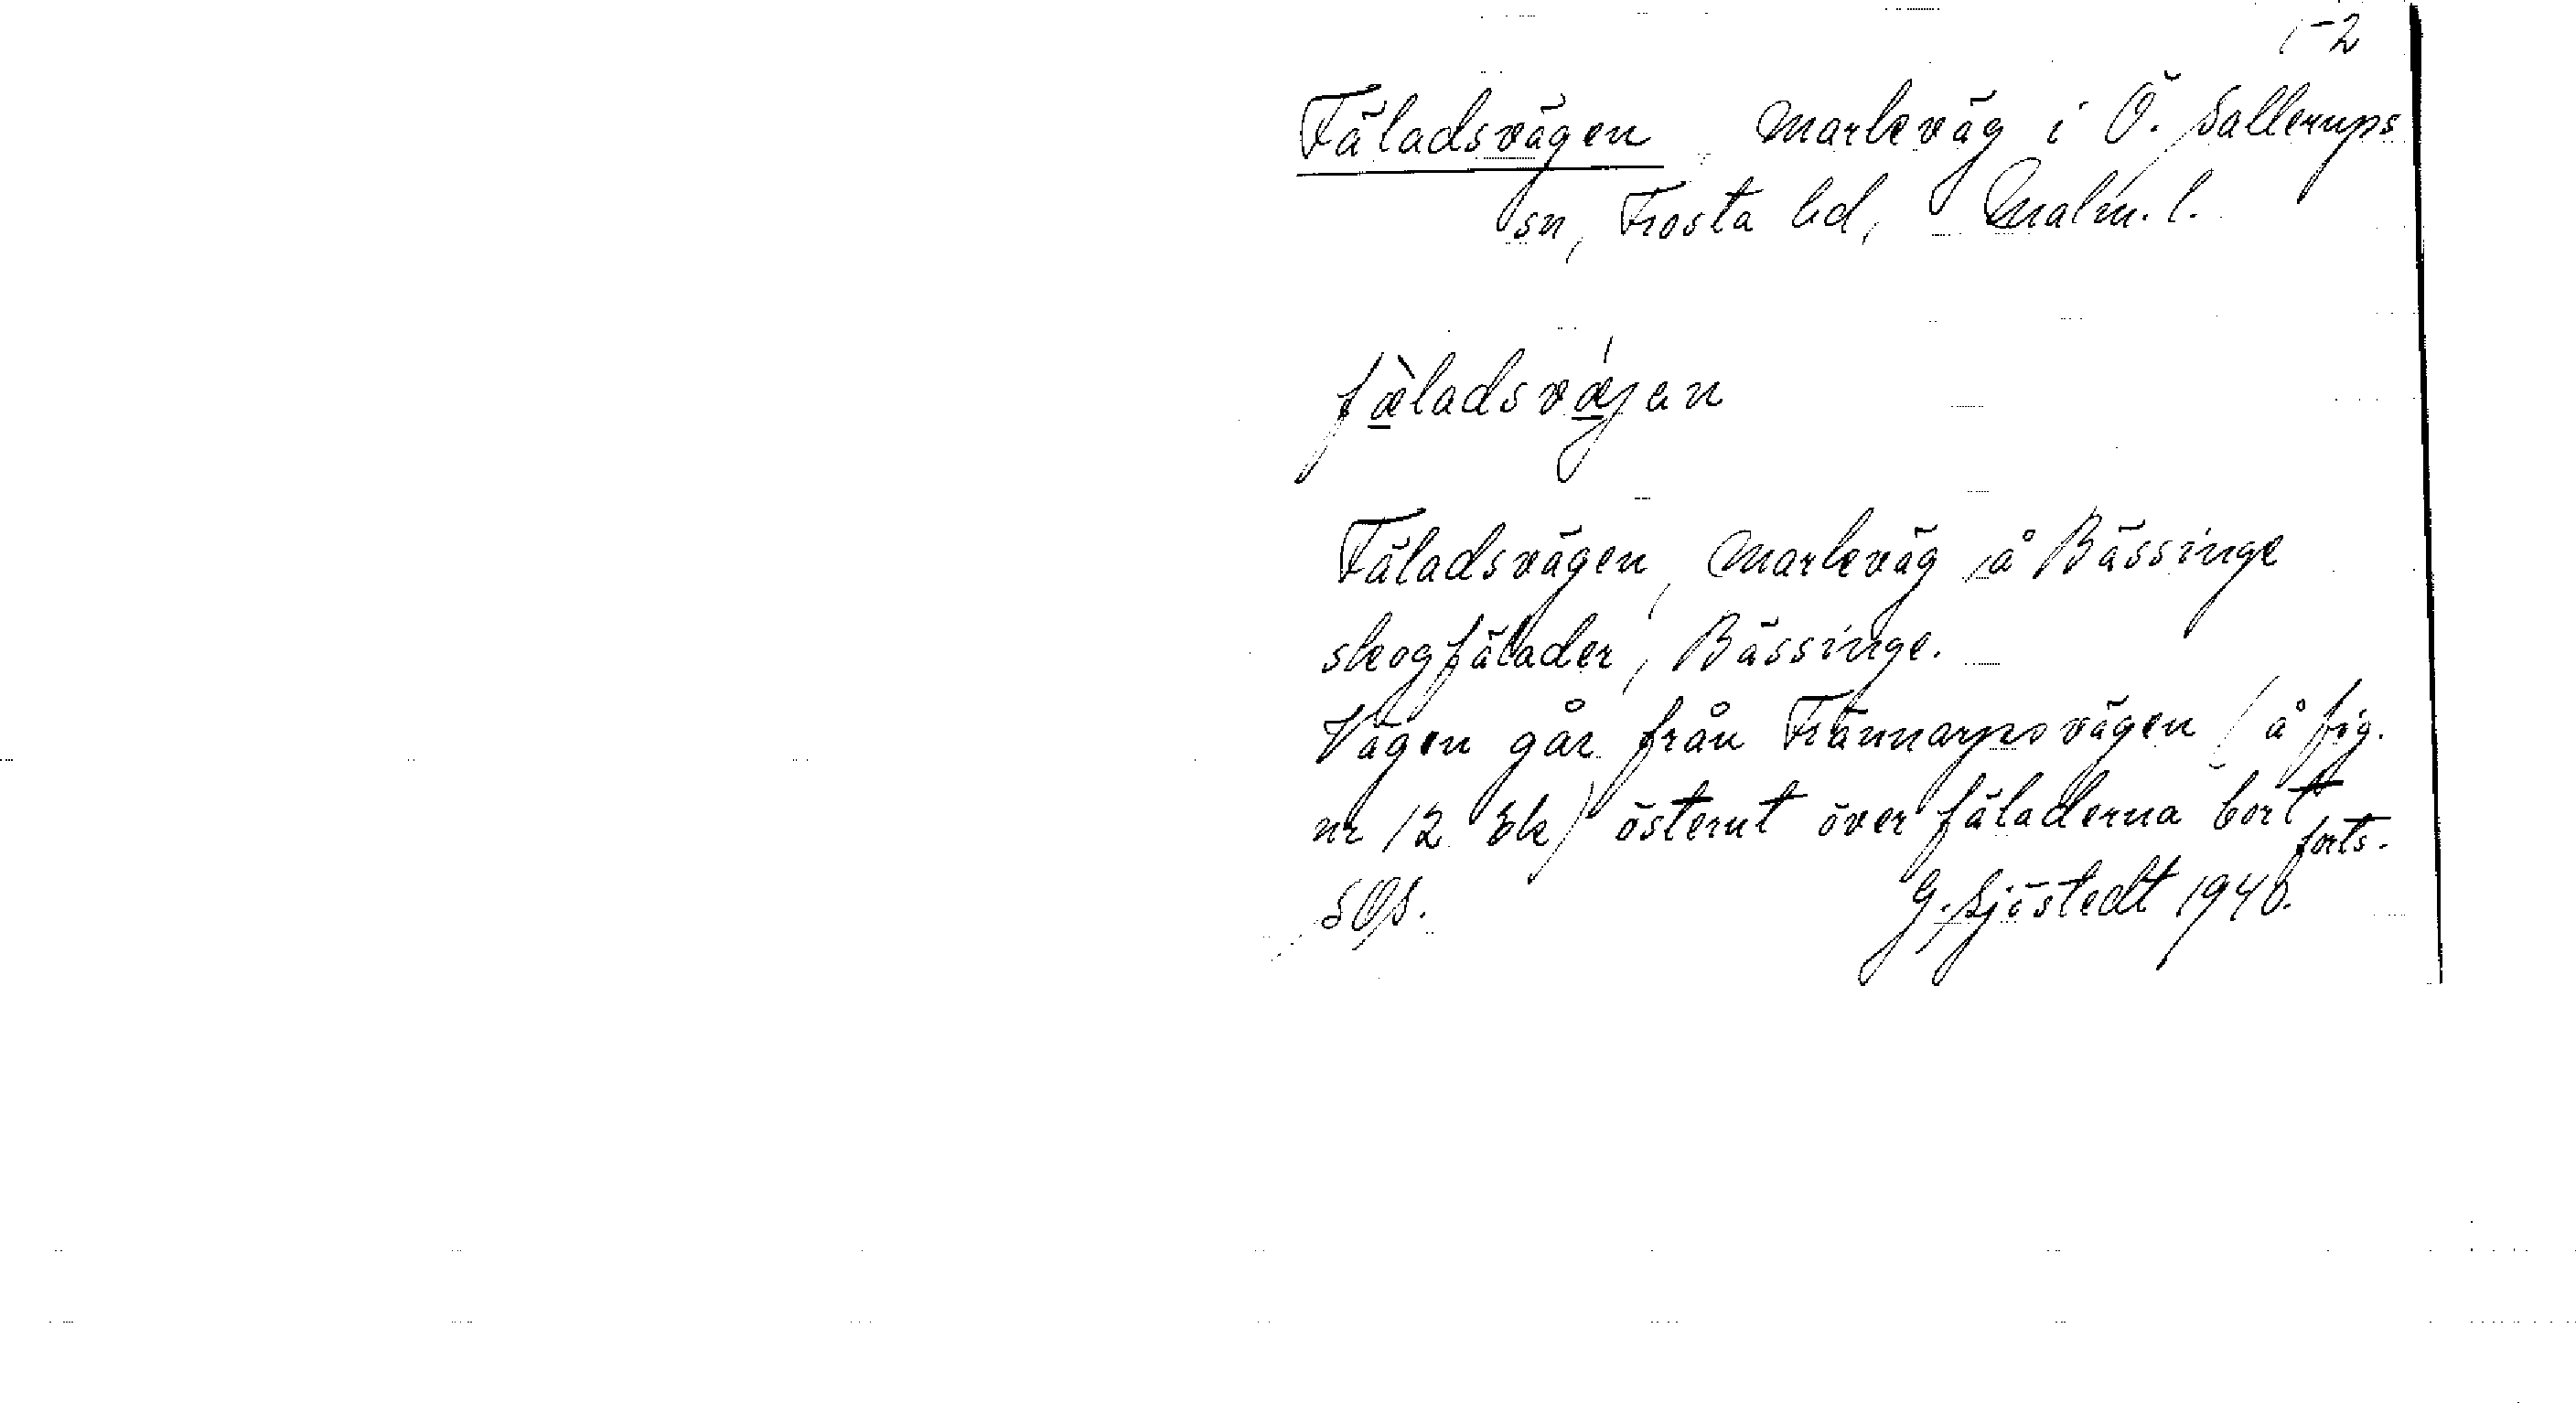 1-2
Fäladsvägen markväg i Ö. Sallerups
sn, Frosta hd, Malm. l.
fæ̀ladsvǽjen
Fäladsvägen, markväg å Bässinge
skogfälader, Bässinge.
Vägen går från Frännarpsvägen (å fig.
nr 12 Ek) österut över fäladerna bort
forts.
SOS. G. Sjöstedt 1940.